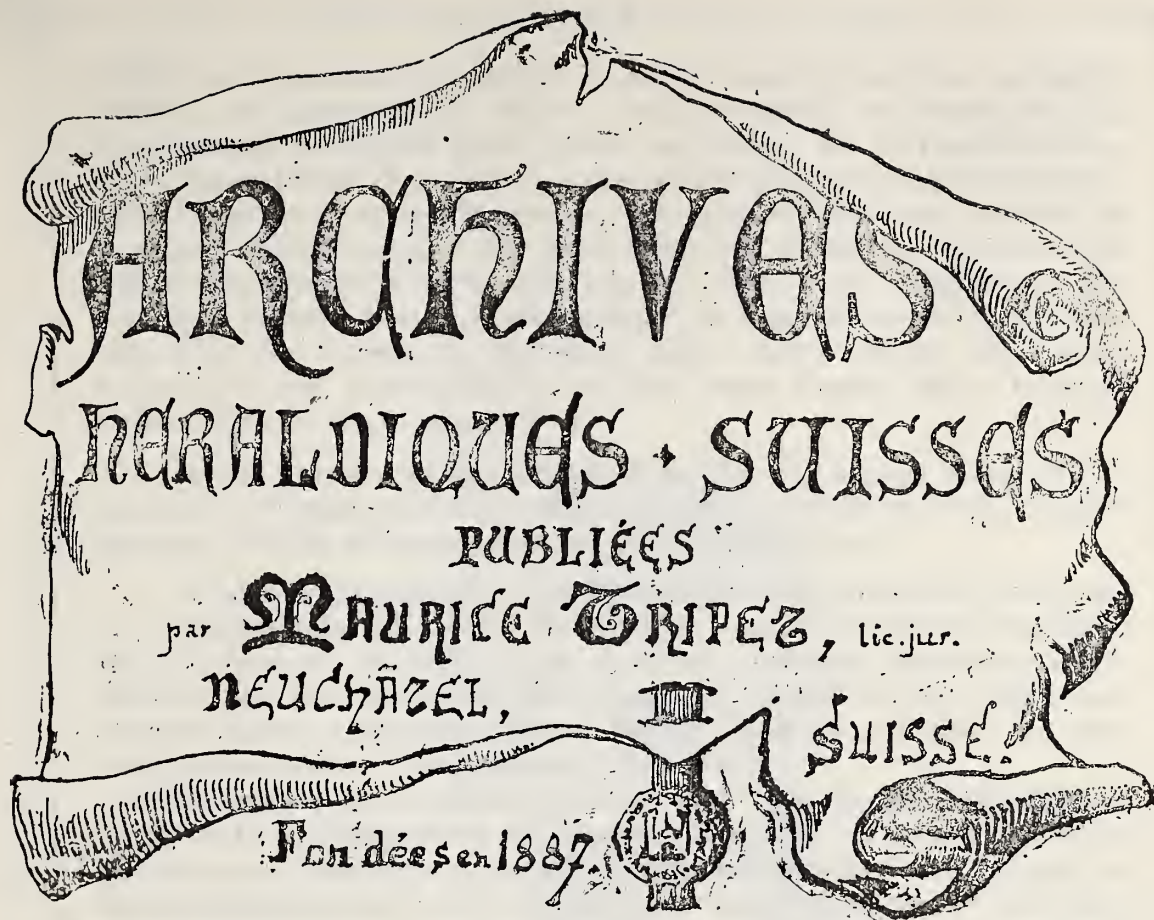 ARCHIVES
HERALDIQUES · SUISSES
PUBLIÉES
par MAURICE TRIPET, lic. jur.
NEUCHÂTEL,
SUISSE.
Fondées en 1887.